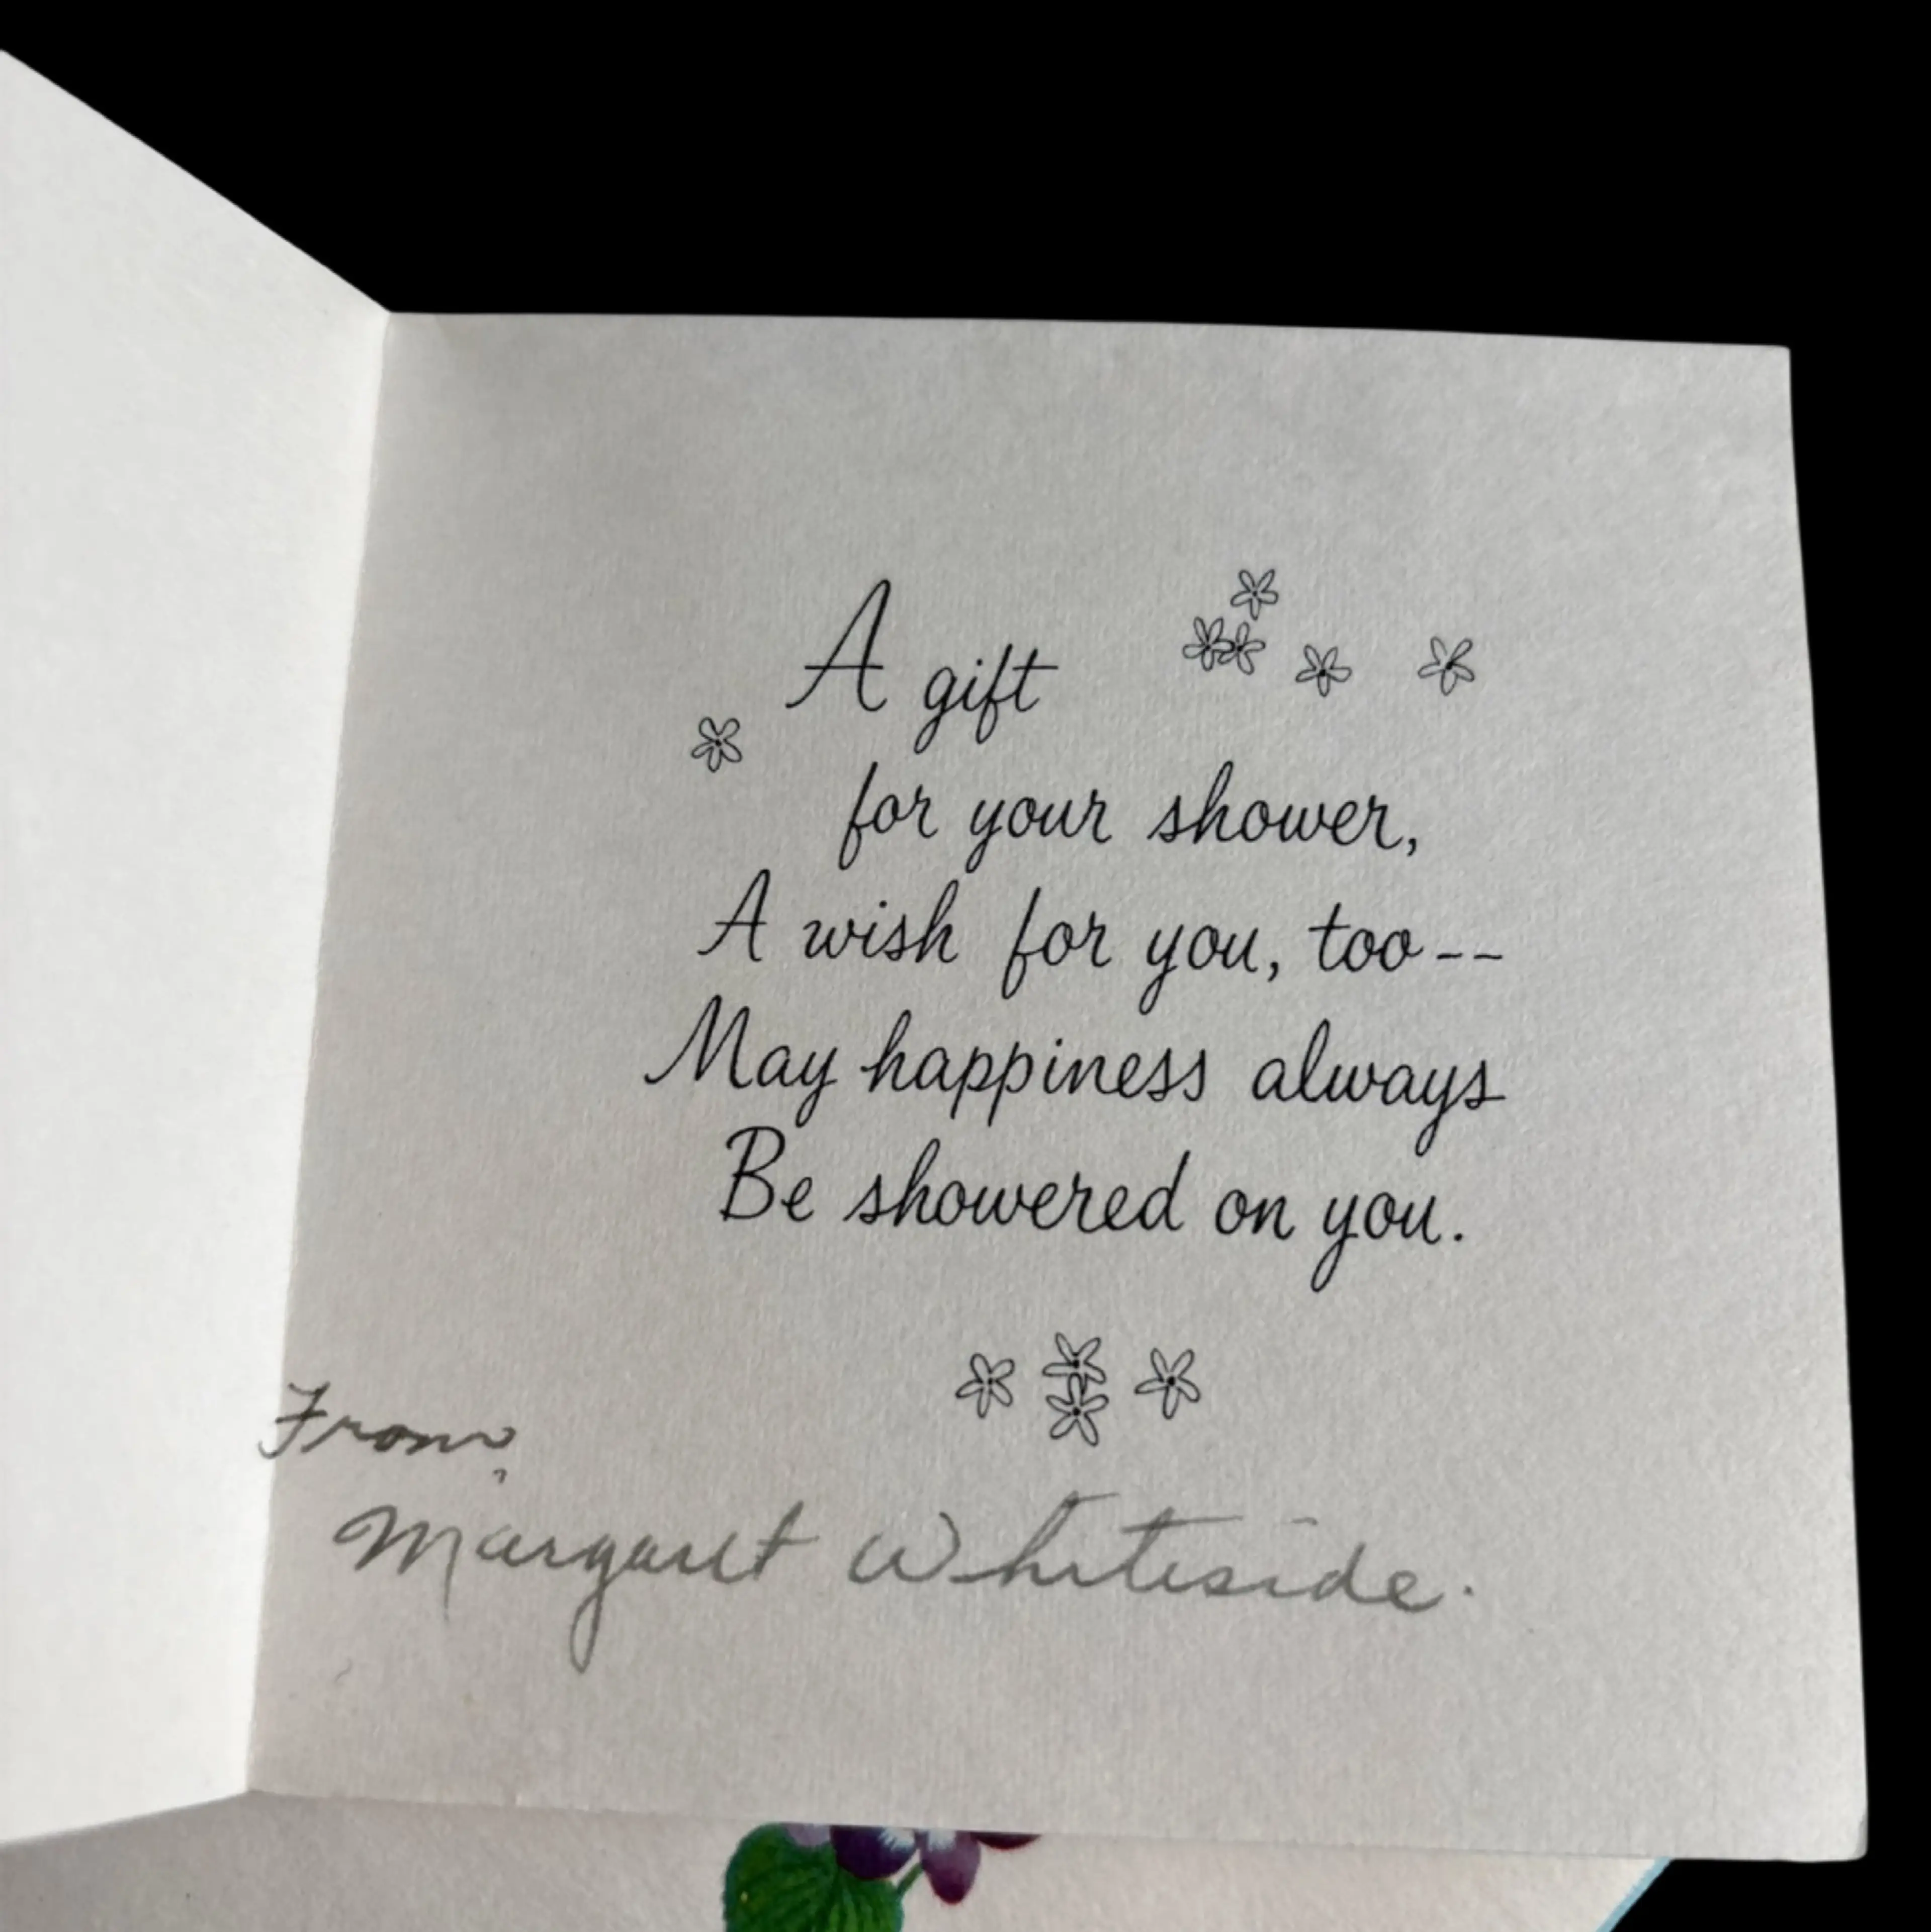 A gift
for your shower,
A wish for you, too--
May happiness always
Be showered on you.
From,
Margaret Whiteside.